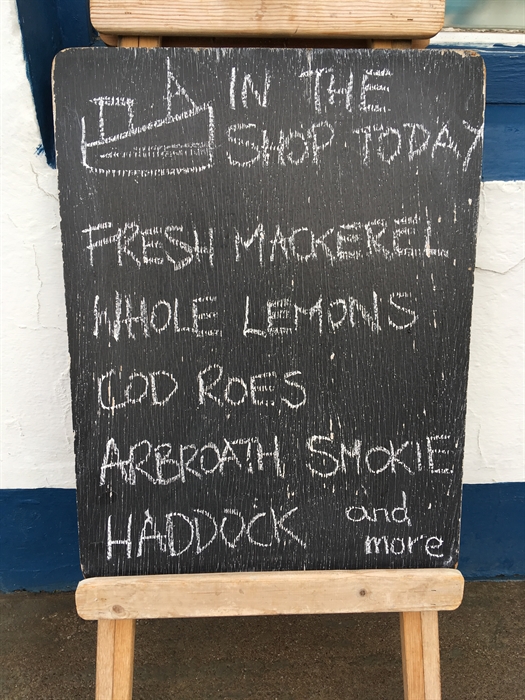 IN THE
SHOP TODAY
FRESH MACKEREL
WHOLE LEMONS
COD ROES
ARBROATH SMOKIE
HADDOCK and
more